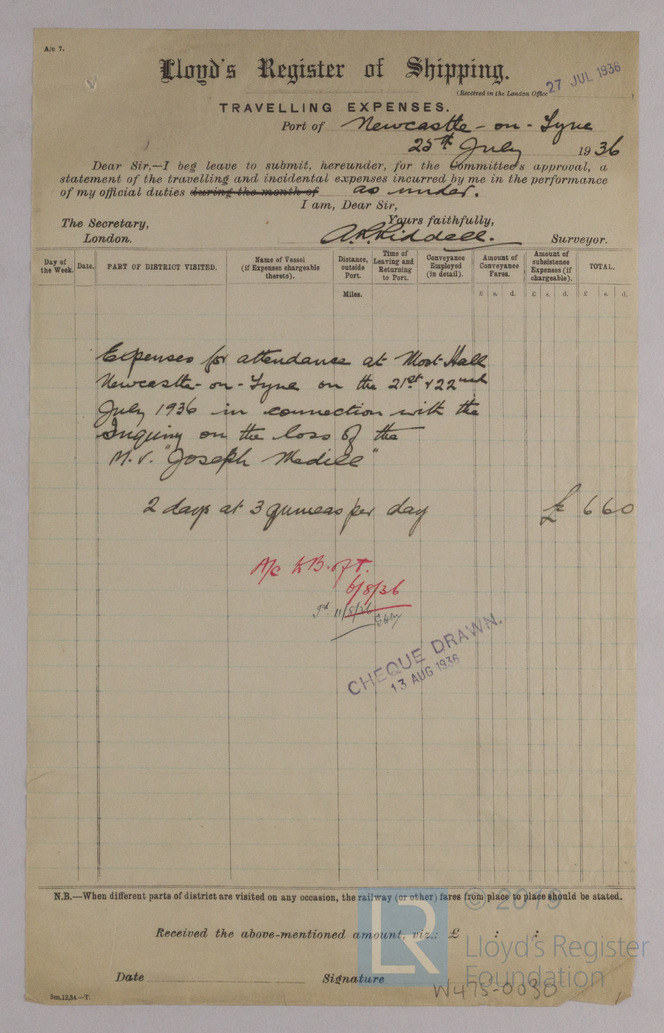 A/c 7.
Lloyd's Register of Shipping.
(Received in the London Office 27 JUL 1936
TRAVELLING EXPENSES.
Port of Newcastle-on-Tyne
25th July 1936
Dear Sir,—I beg leave to submit, hereunder, for the Committee's approval, a
statement of the travelling and incidental expenses incurred by me in the performance
of my official duties during the month of as under.
I am, Dear Sir,
The Secretary, Yours faithfully,
London. A.R. Riddell. Surveyor.
Day of the Week. Date. PART OF DISTRICT VISITED. Name of Vessel (if Expenses chargeable thereto). Distance, outside Port. Time of Leaving and Returning to Port. Conveyance Employed (in detail). Amount of Conveyance Fares. Amount of subsistence Expenses (if chargeable). TOTAL.
Miles. £ s. d. £ s. d. £ s. d.
Expenses for attendance at Moot Hall
Newcastle-on-Tyne on the 21st & 22nd
July 1936 in connection with the
Inquiry on the loss of the
M.V. "Joseph Medill"
2 days at 3 guineas per day £ 6 6 0
A/c B. of T.
6/8/36
11/8/36
CHEQUE DRAWN.
13 AUG 1936
N.B.—When different parts of district are visited on any occasion, the railway (or other) fares from place to place should be stated.
Received the above-mentioned amount, viz.: £ : :
Date Signature
5m.12,34.—T.
W475-0030
© 2019
LR
Lloyd's Register
Foundation